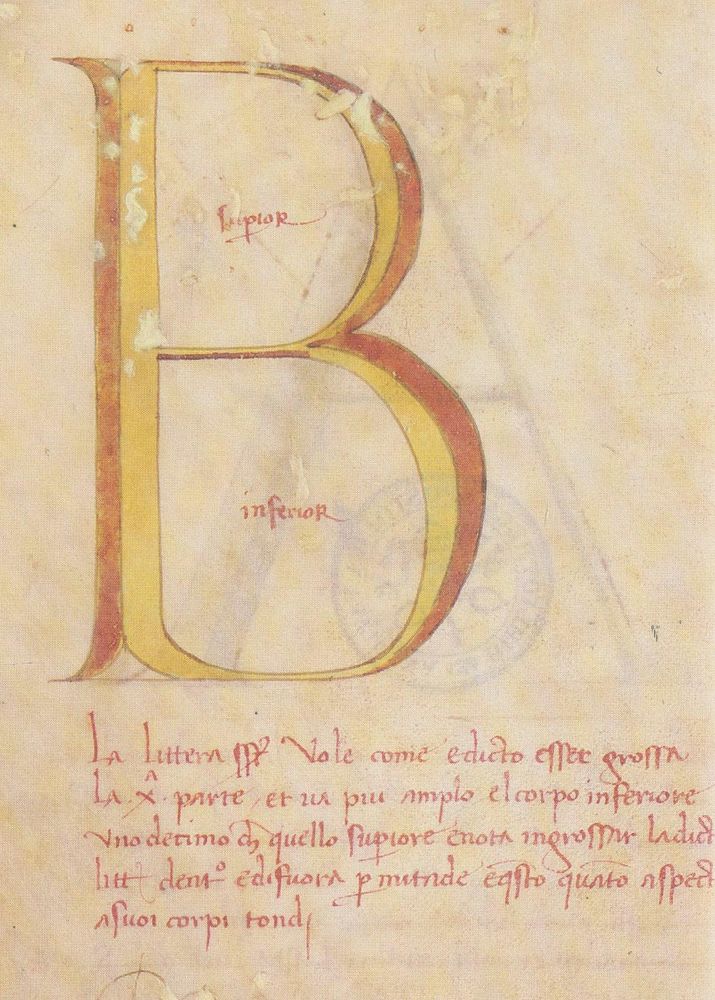 B
supior
inferior
La littera sp̃ Vole come e dicto esser grossa
La .xᵃ. parte, et va piu amplo el corpo inferiore
vno decimo ch̃ quello supiore e nota ingrossar la dict
litt dentº e di fuora p mitade e q̃sto quãto aspect
a suoi corpi tondj